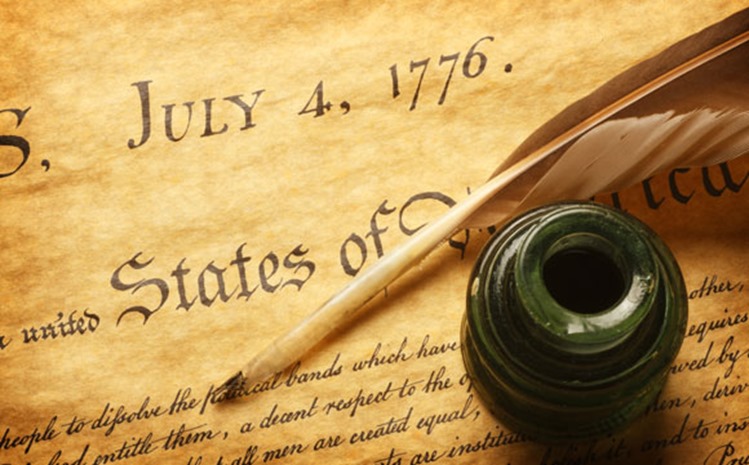 S, JULY 4, 1776.
united States of
people to dissolve the political bands which have other,
entitle them, a decent respect to the requires
all men are created equal,
are institu it, and to ins